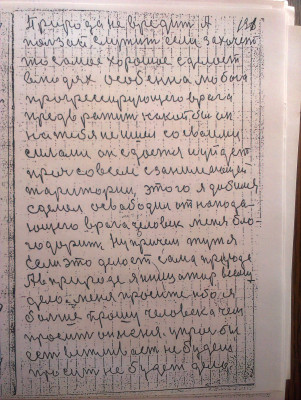 138
Природа не вредит. А
пользой служит если захочет
то самое хорошее сделает
в людях особенно любого
прогрессирующего врага
предвратит какой бы он
на тебя не шел со своими
силами он сдается и уйдет
проч совсем с занимающей
територии, этого я добился
сделал освободил от напада-
ющего врага человек меня бла-
годарит, Ну причем тут я
если это делает сама природа
Я в природе я инициатор всему
делу меня просите ибо я
более прошу человека чем
просит он меня.
есть не будет
просит не будет дела